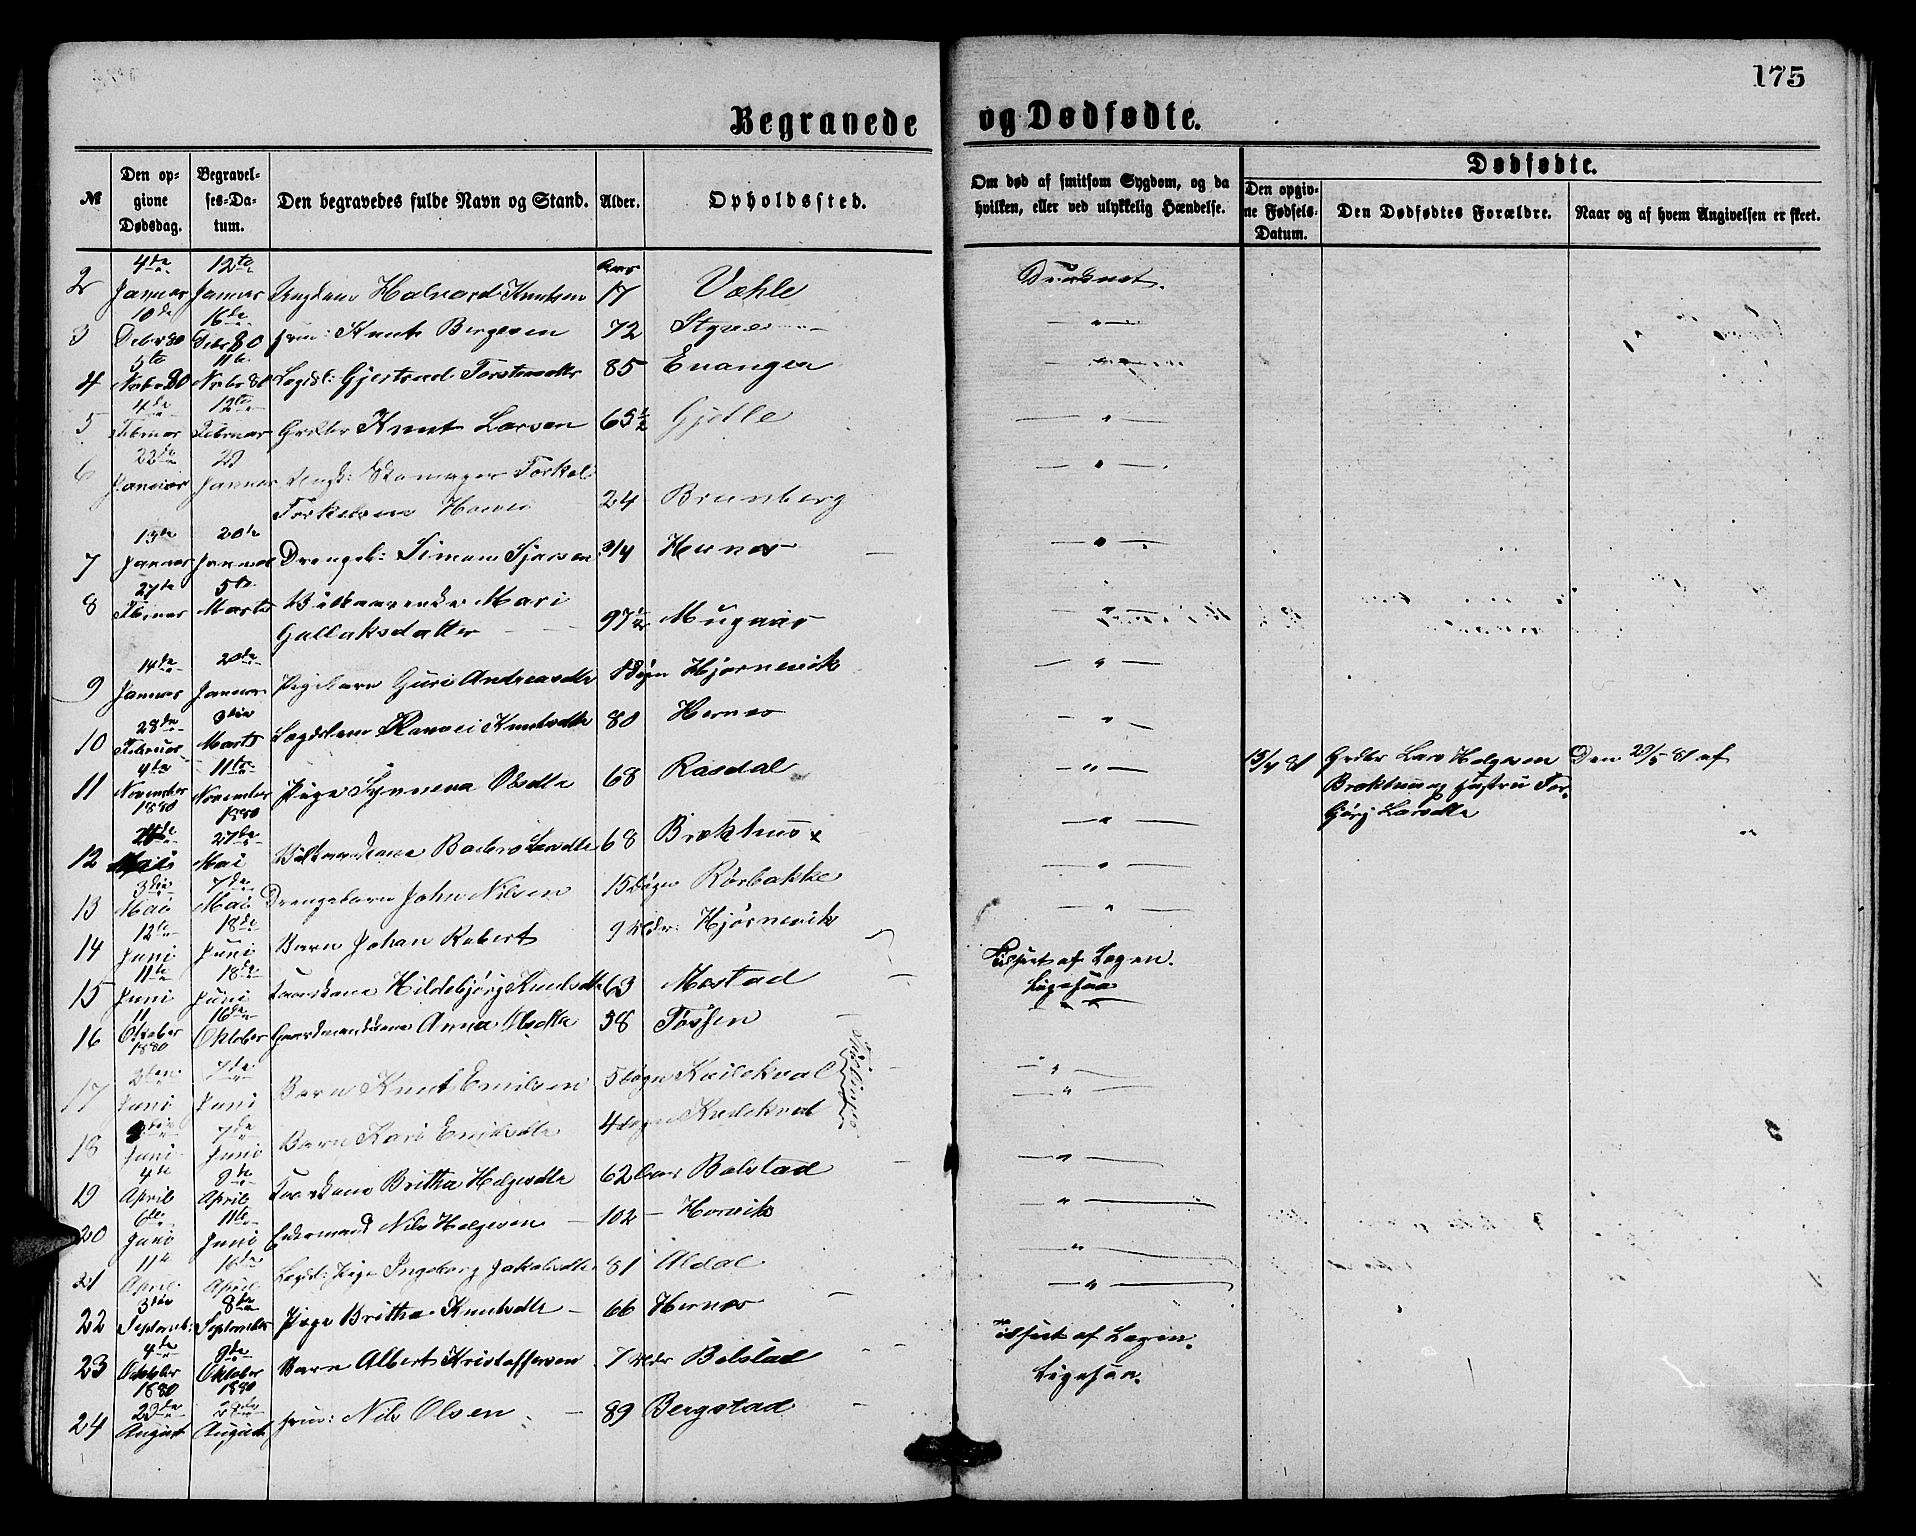 175
Begravede og Dødfødte.
№
Den opgivne Dødsdag.
Begravelses-Datum.
Den begravedes fulde Navn og Stand.
Alder.
Opholdssted.
Om død af smitsom Sygdom, og da hvilken, eller ved ulykkelig Hændelse.
Dødfødte.
Den opgivne Fødsels-Datum.
Den Dødfødtes Forældre.
Naar og af hvem Angivelsen er skeet.
2 4de Januar 12te Januar Ungdom Halvard Knutsen Aar 17 Væhle
3 10de Decbr 80 16de Decbr 80 Knut Bergesen 72 Styve
4 5te Novbr 80 11te Novbr 80 Lægdsl: Gjertrud Torstensdtr 85 Evanger
5 4de Februar 12te Februar Grdbr Knut Larsen 65½ Gjelle
6 22de Januar 29 Januar Ungk: Skomager Torkel
Torkelsen 24 Brunborg
7 13de Januar 20de Januar Drengeb: Simon 3/4 Hernes
8 27de Februar 5te Marts Vilkaarsenke Mari
Gullaksdatter 97½ Mugaas
9 14de Januar 20de Januar Pigebarn Guri Andreasdtr Døgn Hjørnevik
10 28de Februar 3die Marts Lægdslem Ranvei Knutsdtr 80 Hernes
11 4de November 1880 11te November 1880 Pige Synneva Olsdtr 68 Rasdal
15/4 81 Grdbr Lars Helgesen
Bræktun og Hustru Tor-
bjørg Larsdtr
Den 29/5 81 af
12 Mai 27de Mai Vilkaarskone Barbro Larsdtr 68 Bræktun x
13 3die Mai 7de Mai Drengebarn John Nilsen 15 Døgn Rørbakke
14 12te Juni 18de Juni Barn Johan Robert 9 Mdr: Hjørnevik
15 11te Juni 18de Juni Kaarkone Hildebjørg Knutsdtr 63 Mestad
af Lægen.
Ligesaa
16 11 Oktober 1880 16de Oktober Gaardmandskone Anna Olsdtr 58 Tøssen
17 2den Juni 7de Juni Barn Knut Emilsen 5 Døgn Kvilekval
18 3die Juni 7de Juni Barn Kari Emilsdtr 4 Døgn Kvilekval
Tvillinger
19 4de April 9de April Kaarkone Britha Helgesdtr 62 Aar Bolstad
20 6te Juni 11te Juni Enkemand Nils Helgesen 102 Horvik
21 11te April 18de April Lægdsl: Pige Ingeborg Jakobsdtr 81 Aldal
22 3die Septemb: 8de September Pige Britha Knutsdtr 66 Hernes
23 4de Oktober 1880 9de Oktober 1880 Barn Albert Kristoffersen 7 Mdr Bolstad
af Lægen.
Ligesaa.
24 23de August August Nils Olsen 89 Bergstad